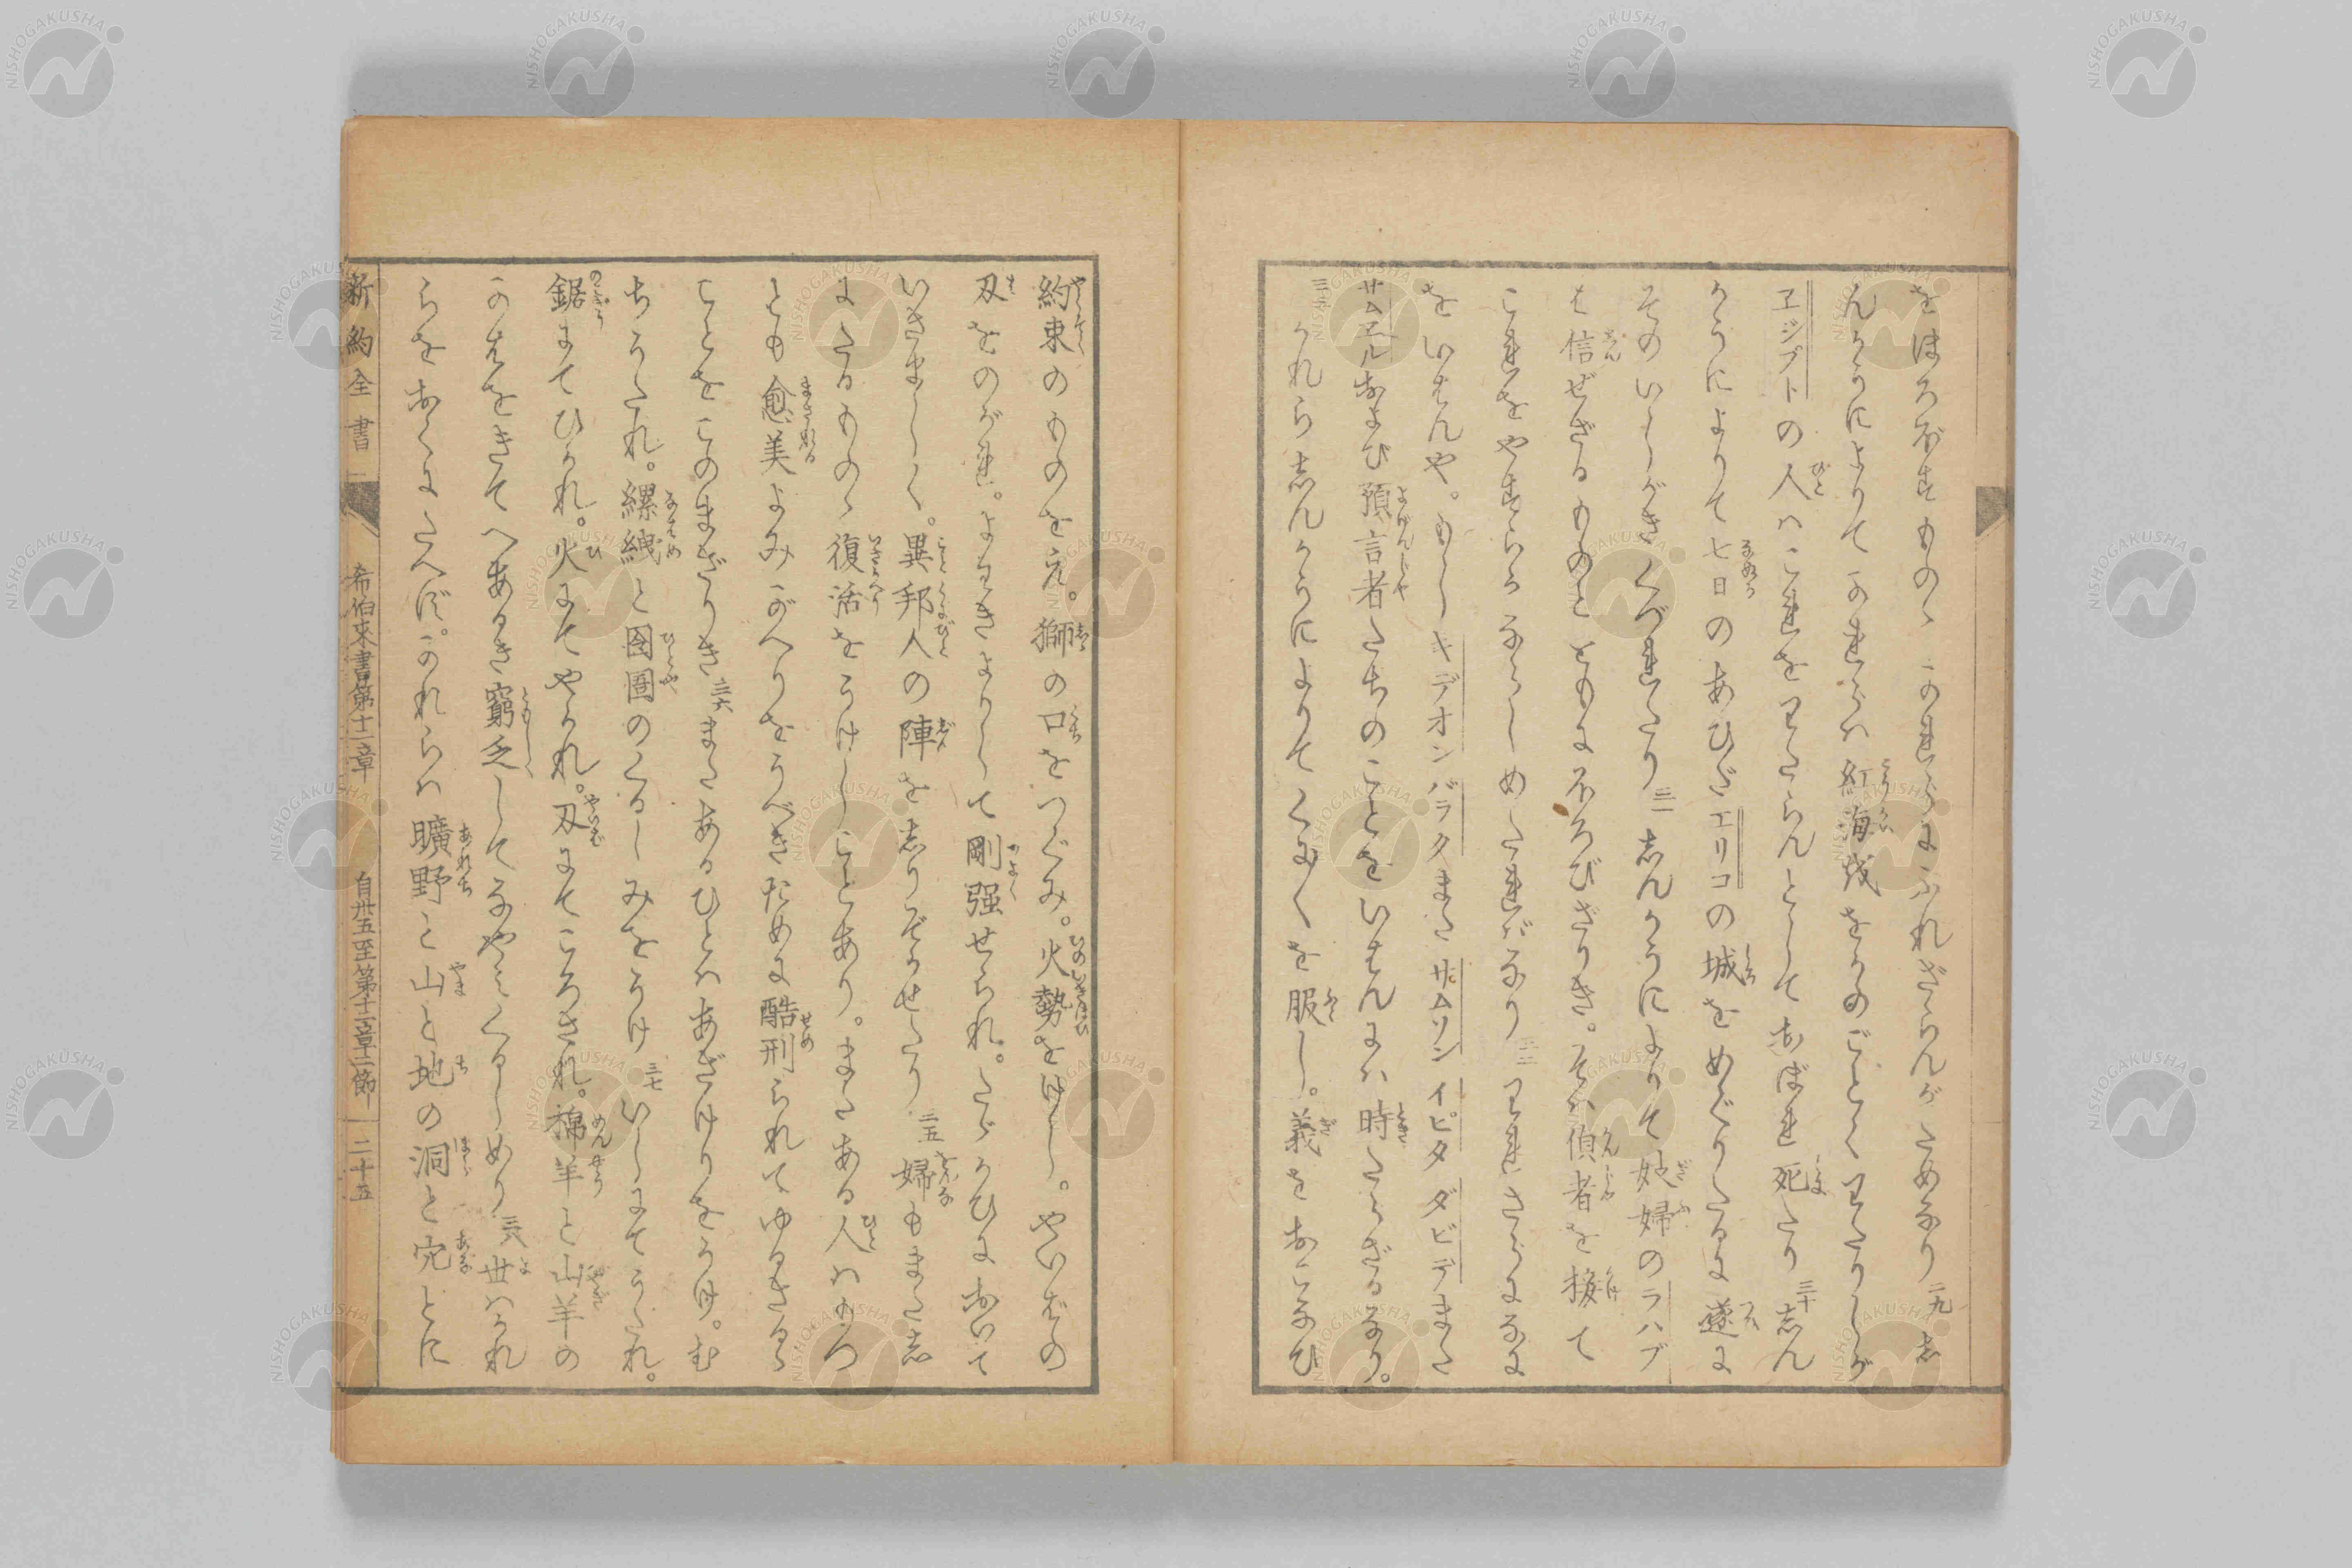 をほろぼすものゝこれらにふれざらんがためなり 二九 志
んかうによりてこれらハ紅海を越をかのごとくわたりしが
エジプトの人ハこれをわたらんとしておぼれ死たり 三十 志ん
かうによりて七日のあひだエリコの城をめぐりたるに遂に
そのいしがきくづれたり 三一 志んかうによりて妓婦のラハブ
は信ぜざるものとともにほろびざりき。そハ偵者を接て
これをやすらかならしめたれバなり 三二 われさらになに
をいはんや。もしキデオンバラクまたサムソンイピタダビデまた
サムエルおよび預言者たちのことをいはんにハ時たらざるなり。
三三 かれら志んかうによりてくにくを服し。義をおこなひ
約束のものをえ。獅の口をつぐみ。火勢をけし。やいばの
刃をのがれ。よわきよりして剛强せられ。たゝかひにおいて
いさましく。異邦人の陣を志りぞかせたり 三五 婦もまた志
にたるものゝ復活をうけしことあり。またある人ハもつ
とも愈美よみがへりをうべきために酷刑られてゆるさるゝ
ことをこのまざりき 三六 またあるひとハあざけりをうけ。む
ちうたれ。縲絏と囹圄のくるしみをうけ 三七 いしにてうたれ。
鋸にてひかれ。火にてやかれ。刃にてころされ。棉羊と山羊の
かはをきてへあるき窮乏してなやみくるしめり 三八 世ハかれ
らをおくにたへず。かれらハ曠野と山と地の洞と穴とに
新約全書 希伯來書第十一章 自卅五至第十二章二節 二十五